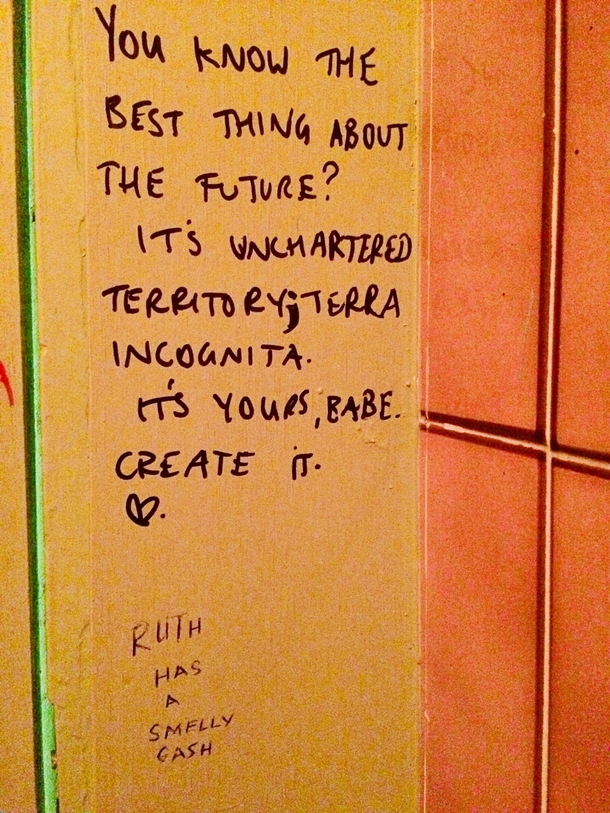 YOU KNOW THE
BEST THING ABOUT
THE FUTURE?
IT'S UNCHARTERED
TERRITORY; TERRA
INCOGNITA.
IT'S YOURS, BABE.
CREATE IT.
♡.
RUTH
HAS
A
SMELLY
GASH